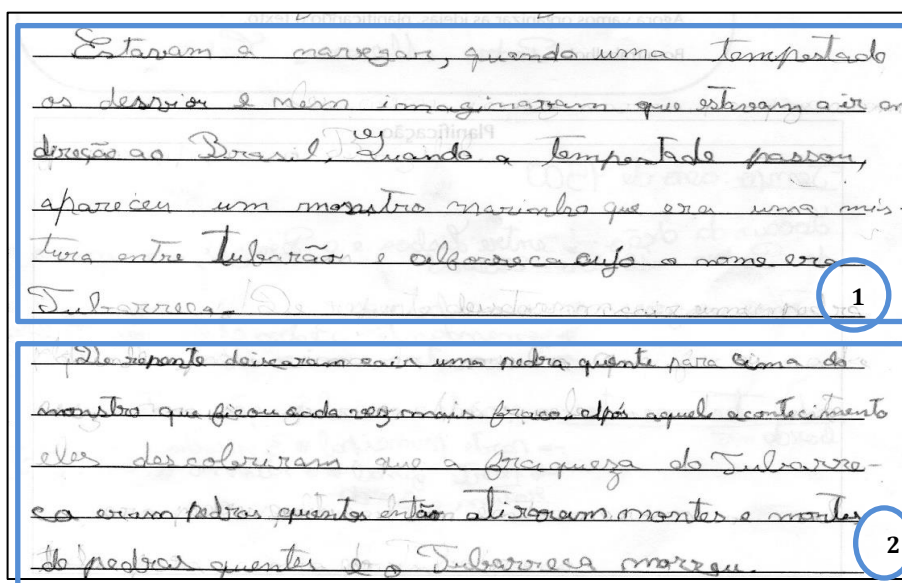 Estavam a navegar, quando uma tempestade
os desviou e nem imaginavam que estavam a ir em
direção ao Brasil. E Quando a tempestade passou,
apareceu um monstro marinho que era uma mis-
tura entre Tubarão e alforreca cujo o nome era
Tubarreca.
1
De repente deixaram cair uma pedra quente para cima do
monstro que ficou cada vez mais fraco. Após aquele acontecimento
eles descobriram que a fraqueza do Tubarre-
ca eram pedras quentes então atiraram montes e montes
de pedras quentes e o Tubarreca morreu.
2